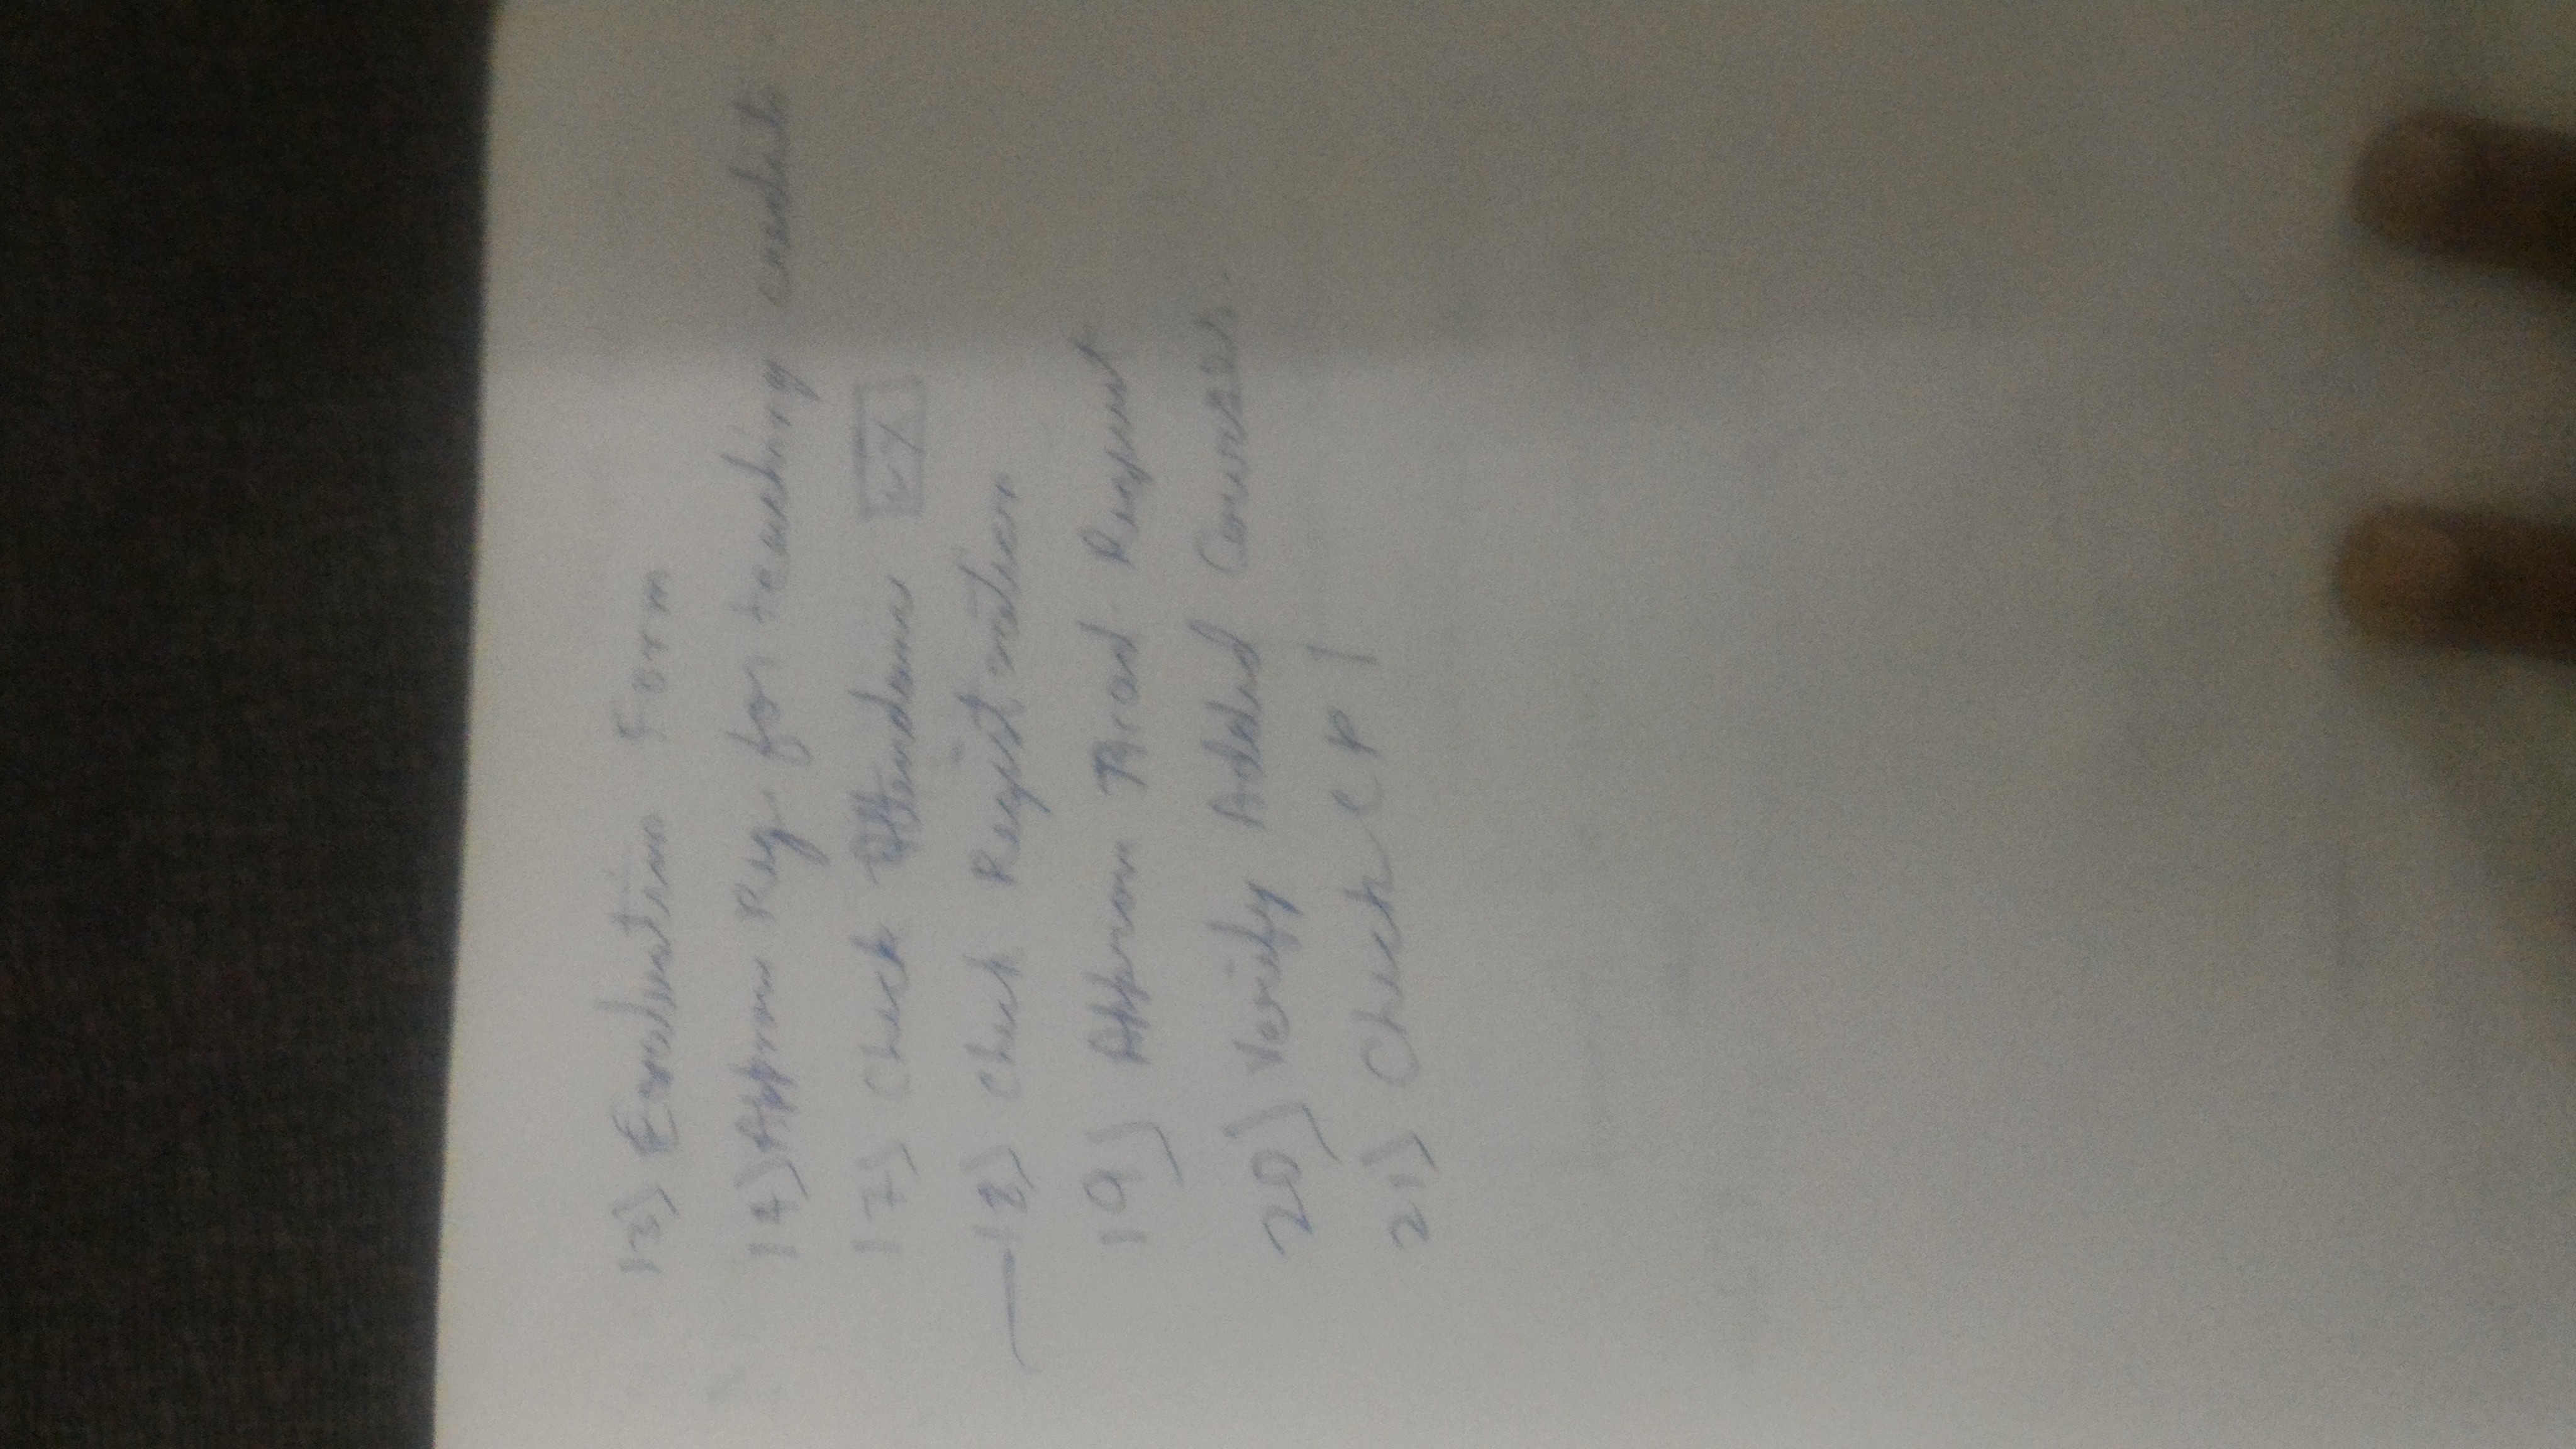 13) Evaluation Form
14) Approve Reg. for teaching credits
17) Check Attendance
18) Check Registration
19) Approve Request
20) Verify Added Courses.
21) Check CPI